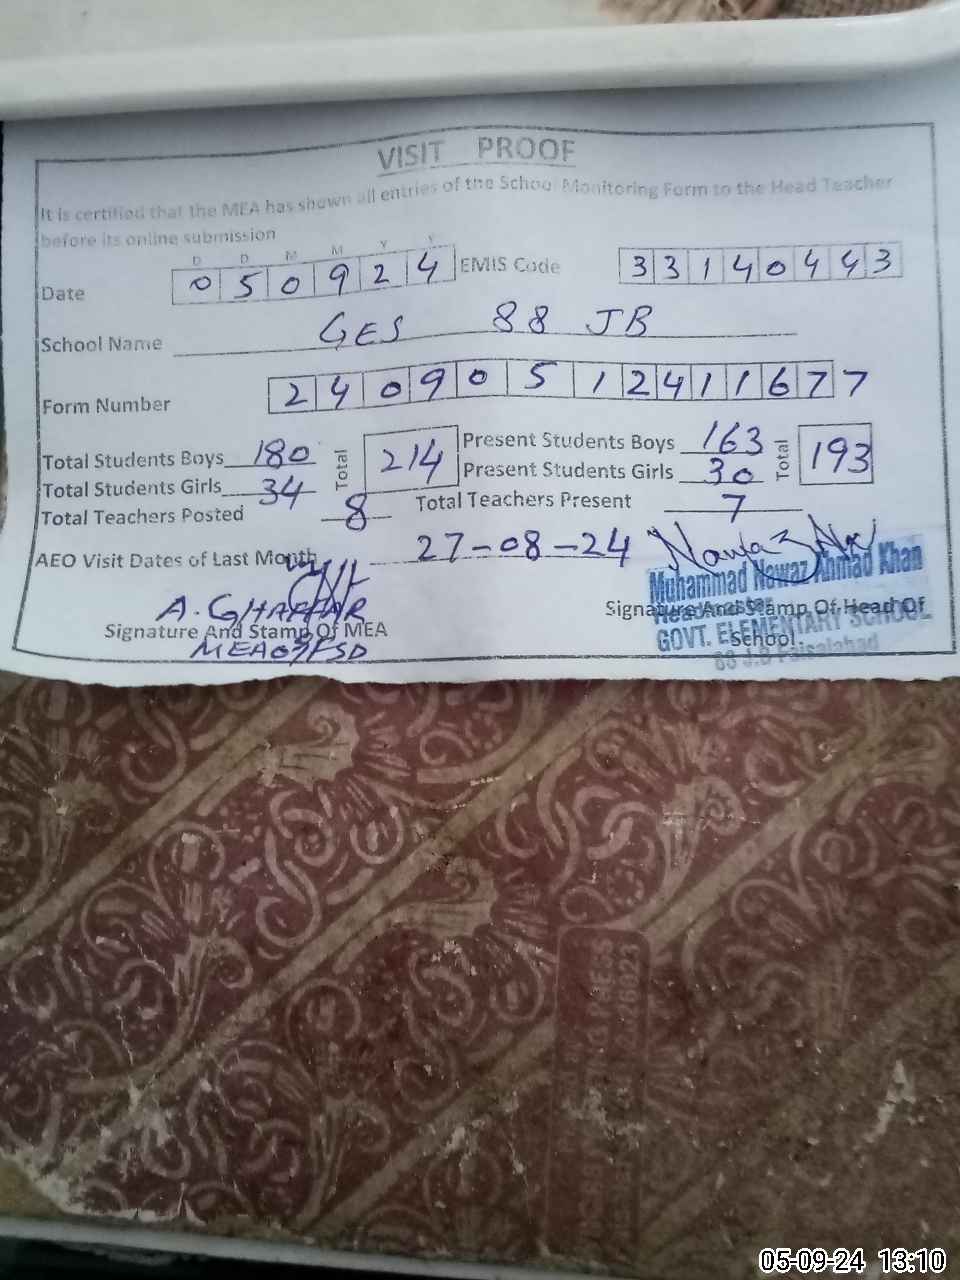 VISIT PROOF
It is certified that the MEA has shown all entries of the School Monitoring Form to the Head Teacher
before its online submission
D D M M Y Y
Date 0 5 0 9 2 4 EMIS Code 3 3 1 4 0 4 4 3
School Name GES 88 JB
Form Number 2 4 0 9 0 5 1 2 4 1 1 6 7 7
Total Students Boys 180 Total 214 Present Students Boys 163 Total 193
Total Students Girls 34 Present Students Girls 30
Total Teachers Posted 8 Total Teachers Present 7
AEO Visit Dates of Last Month 27-08-24
Muhammad Nawaz Ahmad Khan
A. GHAFFAR
Headmaster
Signature And Stamp Of MEA Signature And Stamp Of Head Of School.
GOVT. ELEMENTARY SCHOOL
88 J.B Faisalabad
05-09-24 13:10